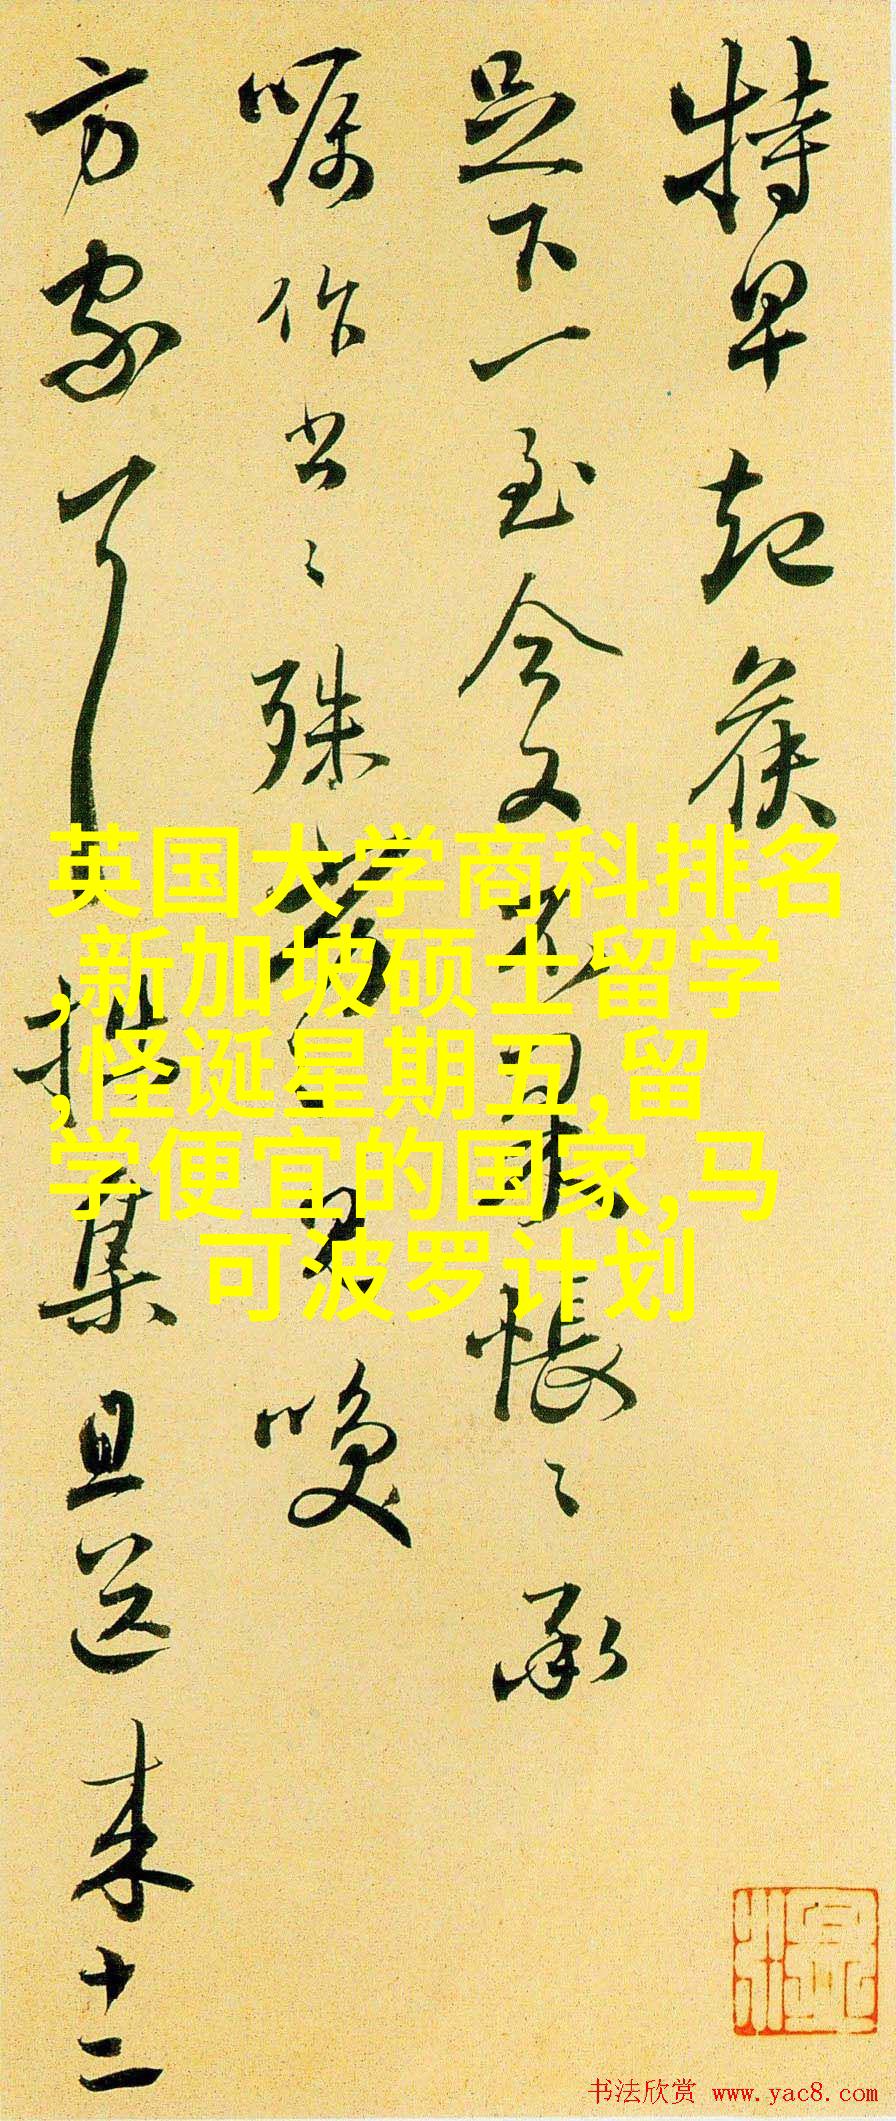 特早起候
足下一至今又不果帐〻承
嘱作书〻殊劳
唤
方家
集且送来十二
英国大学商科排名
,新加坡硕士留学
,怪诞星期五,留
学便宜的国家,马
可波罗计划
书法欣赏 www.yac8.com